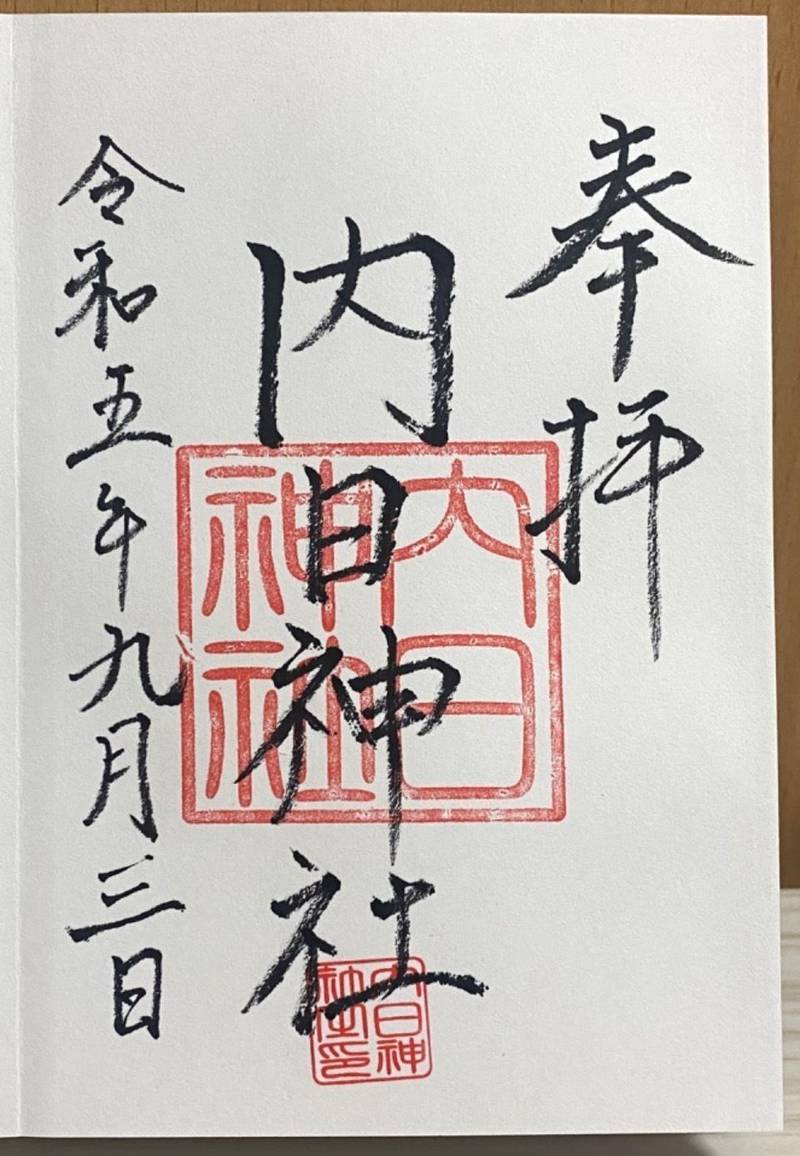 奉拝
内日神社
内日神社
内日神社之印
令和五年九月三日